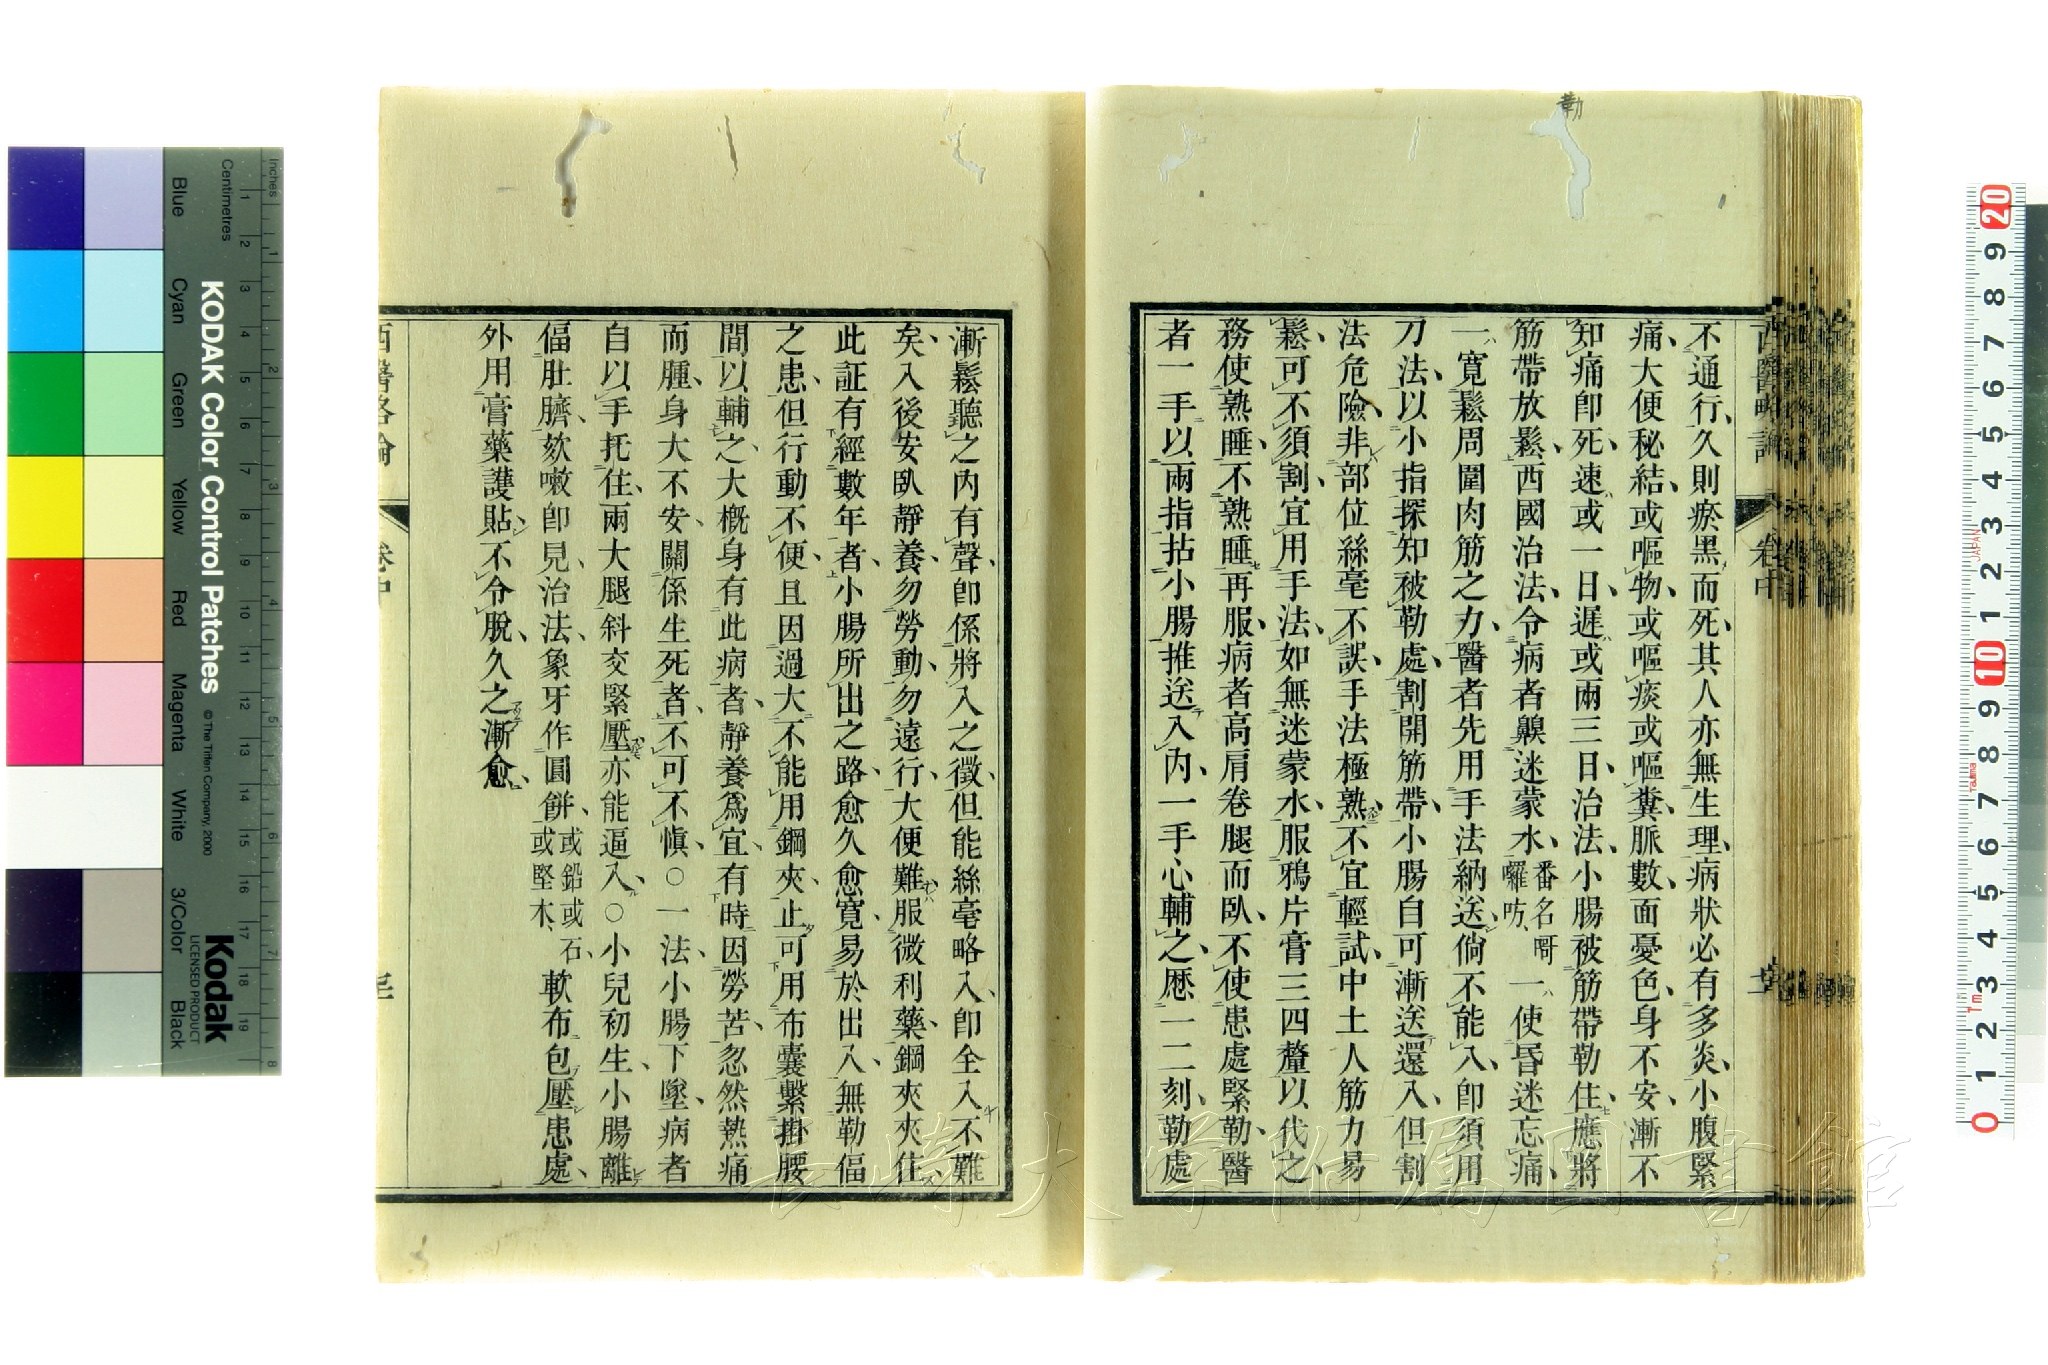 勒
不通行久則瘀黑而死其人亦無生理病狀必有多炎小腹緊
痛大便秘結或嘔物或嘔痰或嘔糞脈數面憂色身不安漸不
知痛卽死速或一日遲或兩三日治法小腸被筋帶勒住應將
筋帶放鬆西國治法令病者齅迷蒙水番名哥囉吩一使昏迷忘痛
一寛鬆周圍肉筋之力醫者先用手法納送倘不能入卽須用
刀法以小指探知被勒處割開筋帶小腸自可漸送還入但割
法危險非部位絲毫不誤手法極熟不宜輕試中土人筋力易
鬆可不須割宜用手法如無迷蒙水服鴉片膏三四釐以代之
務使熟睡不熟睡再服病者高肩卷腿而臥不使患處緊勒醫
者一手以兩指拈小腸推送入內一手心輔之歷一二刻勒處
西醫略論 卷中
漸鬆聽之內有聲卽係將入之徵但能絲毫略入卽全入不難
矣入後安臥靜養勿勞動勿遠行大便難服微利藥鋼夾夾住
此証有經數年者小腸所出之路愈久愈寛易於出入無勒偪
之患但行動不便且因過大不能用鋼夾止可用布囊繫掛腰
間以輔之大槪身有此病者靜養爲宜有時因勞苦忽然熱痛
而腫身大不安關係生死者不可不愼○一法小腸下墜病者
自以手托住兩大腿斜交緊壓亦能逼入○小兒初生小腸離
偪肚臍欬嗽卽見治法象牙作圓餠或鉛或石或堅木軟布包壓患處
外用膏藥護貼不令脫久之漸愈
西醫略論 卷中
KODAK Color Control Patches
© The Tiffen Company, 2000
Kodak
LICENSED PRODUCT
Inches
Centimetres
Blue
Cyan
Green
Yellow
Red
Magenta
White
3/Color
Black
1 2 3 4 5 6 7 8 9 10 11 12 13 14 15 16 17 18 19
1 2 3 4 5 6 7 8
20 9 8 7 6 5 4 3 2 1 10 9 8 7 6 5 4 3 2 1 0
JAPAN
長崎大学附属図書館